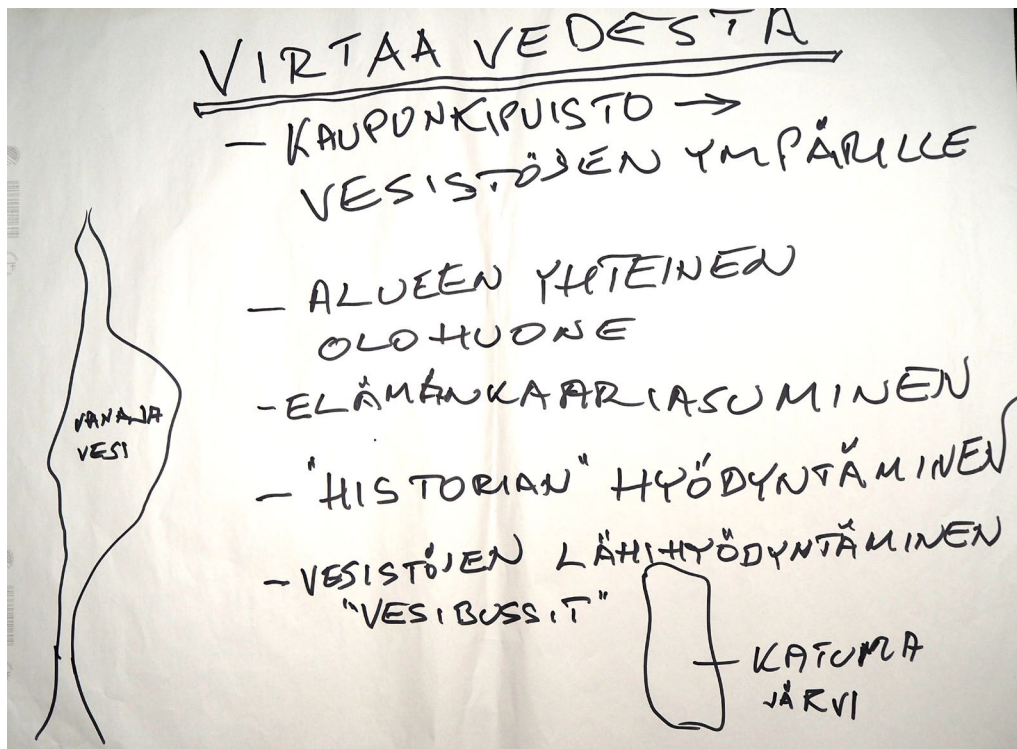 VIRTAA VEDESTÄ
- KAUPUNKIPUISTO →
VESISTÖJEN YMPÄRILLE
- ALUEEN YHTEINEN
OLOHUONE
- ELÄMÄNKAARIASUMINEN
- "HISTORIAN" HYÖDYNTÄMINEN
- VESISTÖJEN LÄHIHYÖDYNTÄMINEN
"VESIBUSSIT"
VANAJA
VESI
KATUMA
JÄRVI